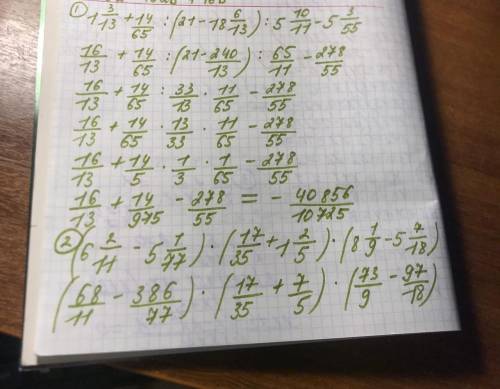 ① 1 3/13 + 14/65 : (21 - 18 6/13) : 5 10/11 - 5 3/55
16/13 + 14/65 : (21 - 240/13) : 65/11 - 278/55
16/13 + 14/65 : 33/13 · 11/65 - 278/55
16/13 + 14/65 · 13/33 · 11/65 - 278/55
16/13 + 14/5 · 1/3 · 1/65 - 278/55
16/13 + 14/975 - 278/55 = - 40856/10725
② (6 2/11 - 5 1/77) · (17/35 + 1 2/5) · (8 1/9 - 5 7/18)
(68/11 - 386/77) · (17/35 + 7/5) · (73/9 - 97/18)